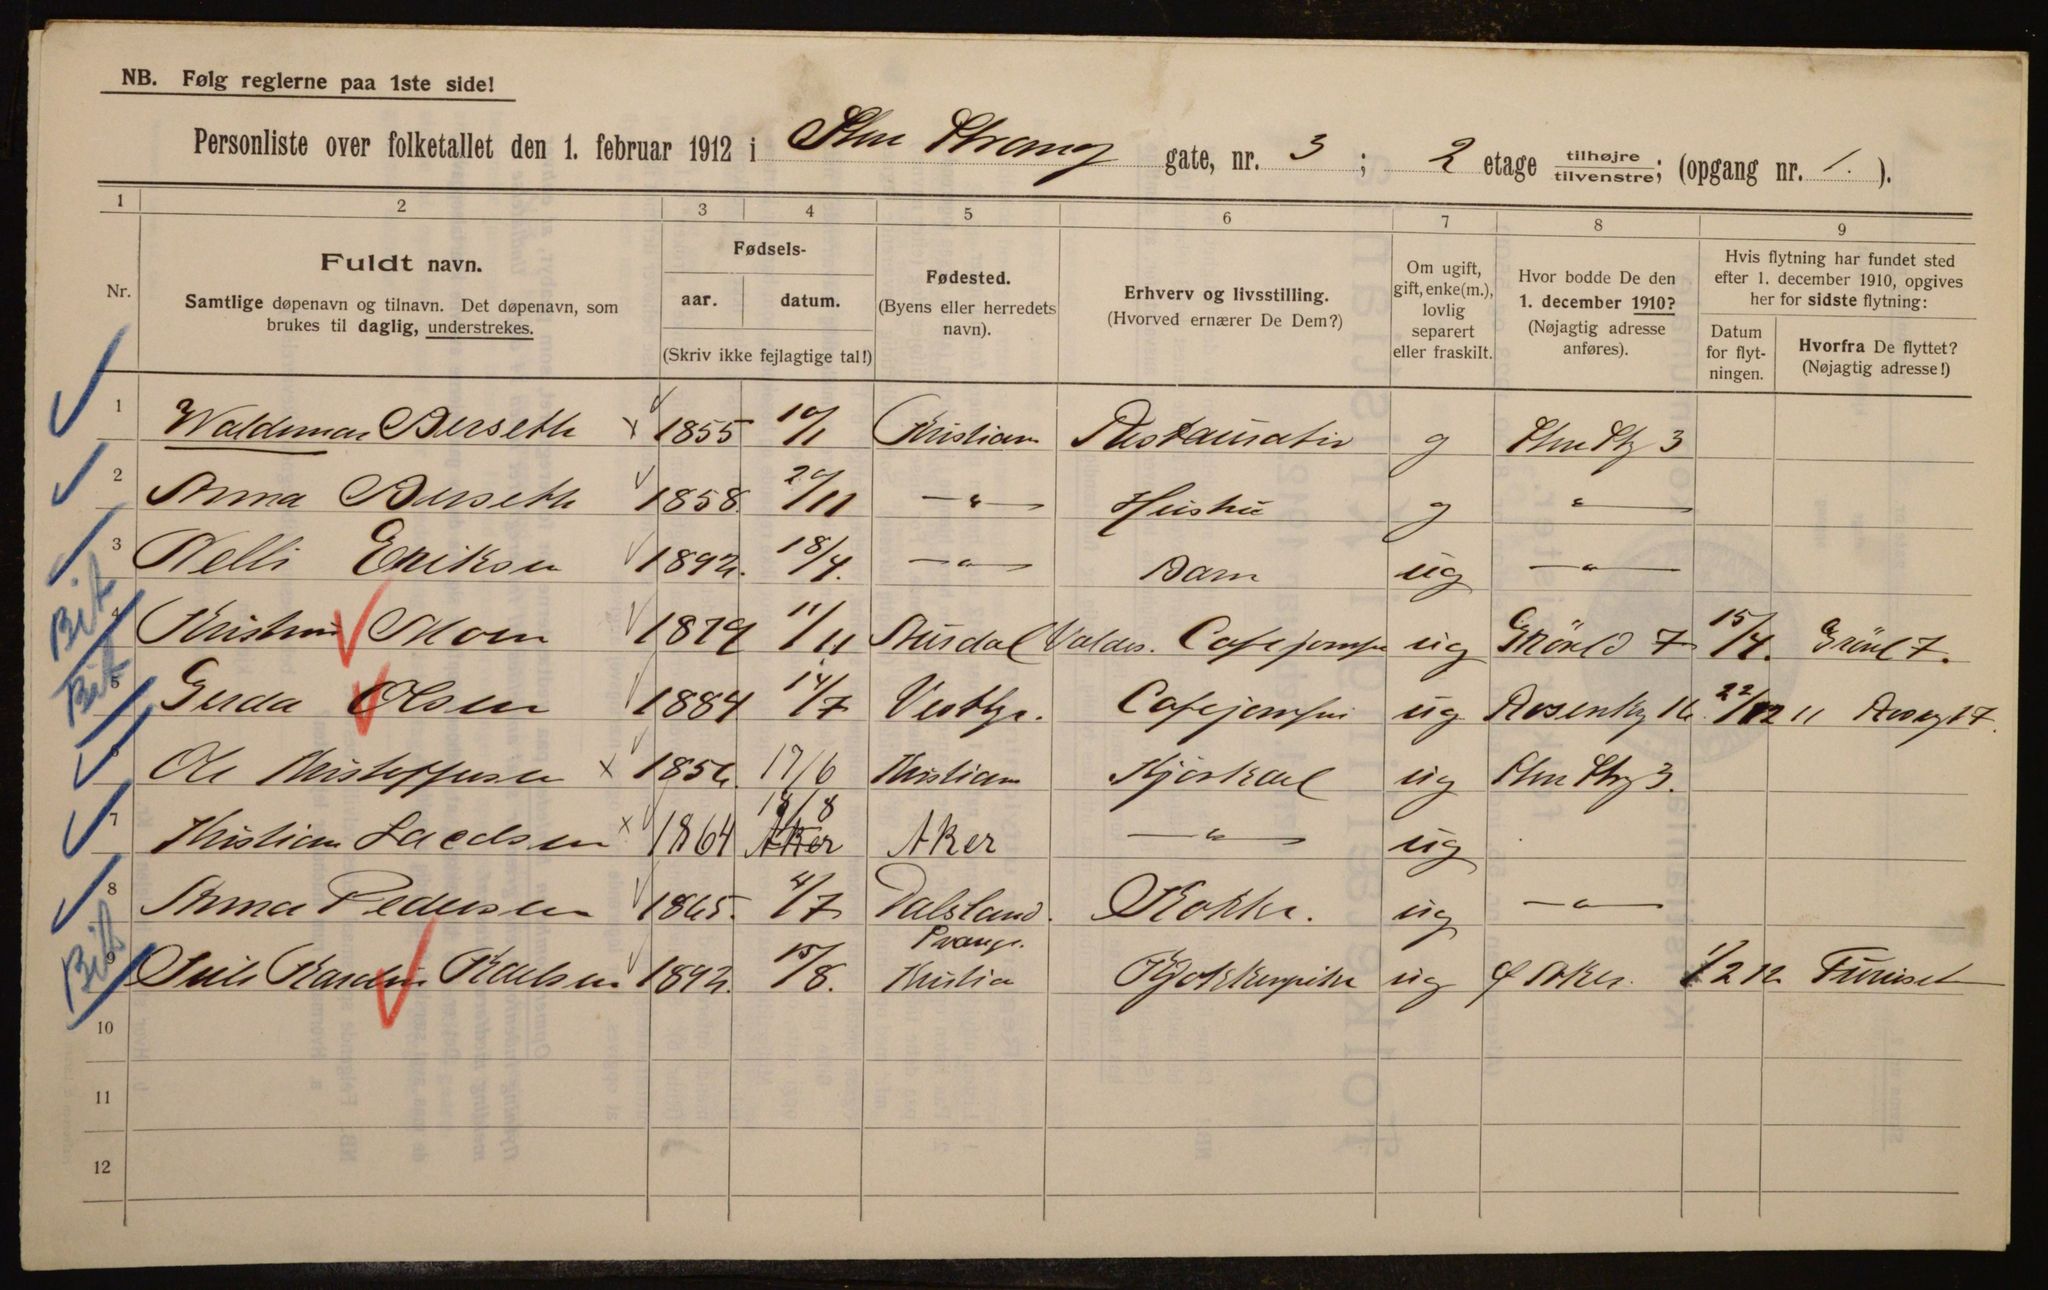 NB. Følg reglerne paa 1ste side!
Personliste over folketallet den 1. februar 1912 i Sten Strang gate, nr. 3 ; 2 etage tilhøjre/tilvenstre; (opgang nr. 1.).
1 2 3 4 5 6 7 8 9
Nr.
Fuldt navn.
Samtlige døpenavn og tilnavn. Det døpenavn, som
brukes til daglig, understrekes.
Fødsels-
aar. datum.
(Skriv ikke fejlagtige tal!)
Fødested.
(Byens eller herredets
navn).
Erhverv og livsstilling.
(Hvorved ernærer De Dem?)
Om ugift,
gift, enke(m.),
lovlig
separert
eller fraskilt.
Hvor bodde De den
1. december 1910?
(Nøjagtig adresse
anføres).
Hvis flytning har fundet sted
efter 1. december 1910, opgives
her for sidste flytning:
Datum
for flyt-
ningen.
Hvorfra De flyttet?
(Nøjagtig adresse!)
1 Waldemar Berseth x 1855 10/1 Kristiania Restauratør g Sten Stg 3
2 Anna Berseth 1858 20/11 —"— Hustru g "
3 Nelli Eriksen 1892. 18/4. —"— Barn ug —"—
Bit
4 Moen 1879 11/11 Aurdal Valdes. Cafejomfru ug Grönld 7 15/4. Grönl 7.
Bit
5 Gerda Olsen 1884 14/7 Vestby. Cafejomfru ug Rosenkg 16 22/12 11
6 Ole Kristoffersen x 1856. 17/6 Kristiania Kjørkarl ug Sten Strg 3.
7 Kristian x 1864 18/8 Aker Aker —"— ug
8 Anna Pedersen 1865. 4/7 Dalsland. Kokke. ug —"—
Bit
9 Karlsen 1892. 15/8. Kristia Kjøkkenpike ug Ø Aker. 1/2 12 Furuset
10
11
12